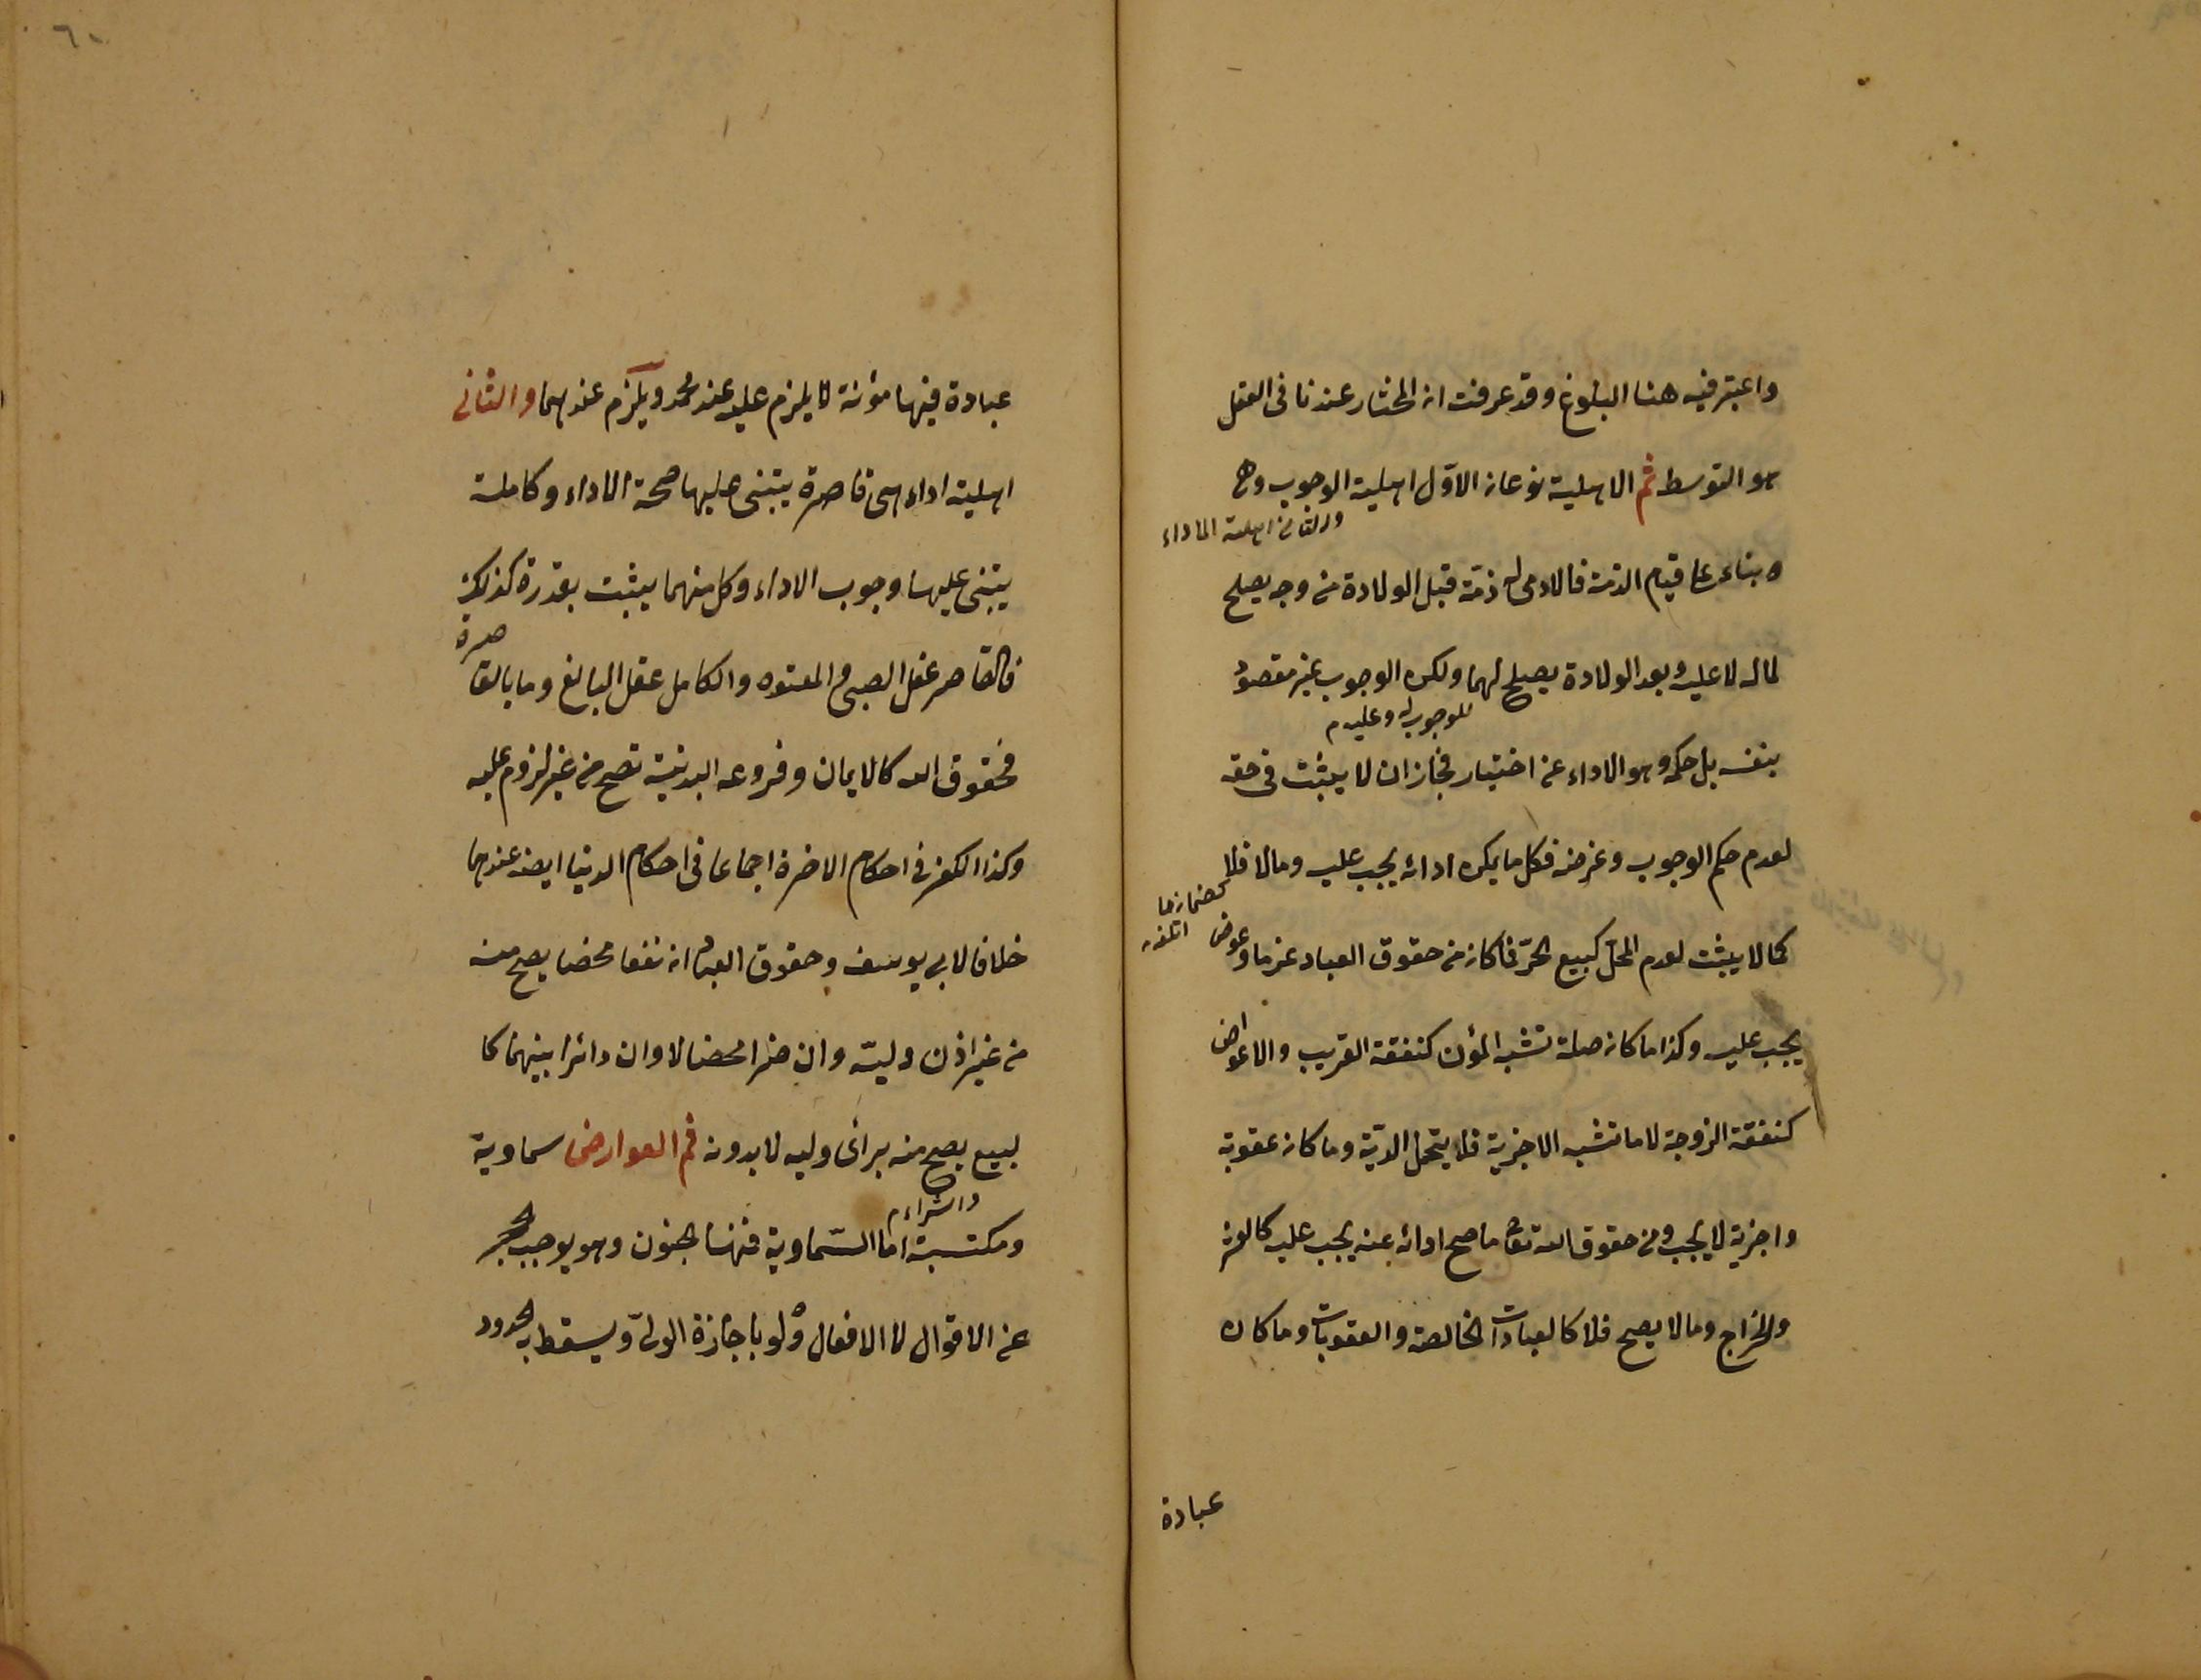 واعتبر فيه هنا البلوغ وقد عرفت ان المختار عندنا فى العقل
هو التوسط ثم الاهلية نوعان الاول اهلية الوجوب وهى
والثانى اهلية الاداء
بناء على قيام الذمة فالادمى له ذمة قبل الولادة من وجه يصلح
لماله لا عليه وبعد الولادة يصلح لهما ولكن الوجوب غير مقصود
للوجوب له وعليه م
بنفسه بل حكمه وهو الاداء عن اختيار فجاز ان لا يثبت فى حقه
لعدم حكم الوجوب وغرضه فكل ما يمكن ادائه يجب عليه وما لا فلا
كضمان ما
اتلفه
كما لا يثبت لعدم المحل كبيع الحر فما كان من حقوق العباد غرما وعوض
يجب عليه وكذا ما كان صلة تشبه المؤن كنفقة القريب والاعواض
كنفقة الزوجة لا ما تشبه الاجزية فلا يتحمل الدية وما كان عقوبة
واجزية لا يجب ومن حقوق الله تعالى ما صح ادائه عنه يجب عليه كالعشر
والخراج وما لا يصح فلا كالعبادات الخالصة والعقوبات وما كان
عبادة
٦٠
عبادة فيها مؤنة لا يلزم عليه عند محمد ويلزم عندهما والثانى
اهلية اداء هى قاصرة يبتنى عليها صحة الاداء وكاملة
يبتنى عليها وجوب الاداء وكل منهما يثبت بقدرة كذلك
فالقاصر عقل الصبى والمعتوه والكامل عقل البالغ وما بالقا
صرة
فحقوق الله كالايمان وفروعه البدنية تصح من غير لزوم عليه
وكذا الكفر فى احكام الاخرة اجماعا فى احكام الدنيا ايضه عندهما
خلافا لابى يوسف وحقوق العباد ان نفعا محضا يصح منه
من غير اذن وليه وان ضرا محضا لا وان دائرا بينهما كا
لبيع يصح منه براى وليه لا بدونه ثم العوارض سماوية
والشراء م
ومكتسبة اما السماوية فمنها الجنون وهو يوجب الحجر
عن الاقوال لا الافعال ولو باجازة الولى ويسقط به الحدود